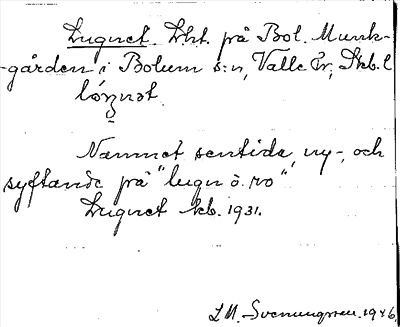 Lugnet. Lht. på Bol. Munk-
gården i Bolum s:n, Valle hr, Skb. l
Namnet sentida, ny-, och
syftande på "lugn o. ro".
Lugnet kb. 1931.
L. M. Svenungsson. 1946.